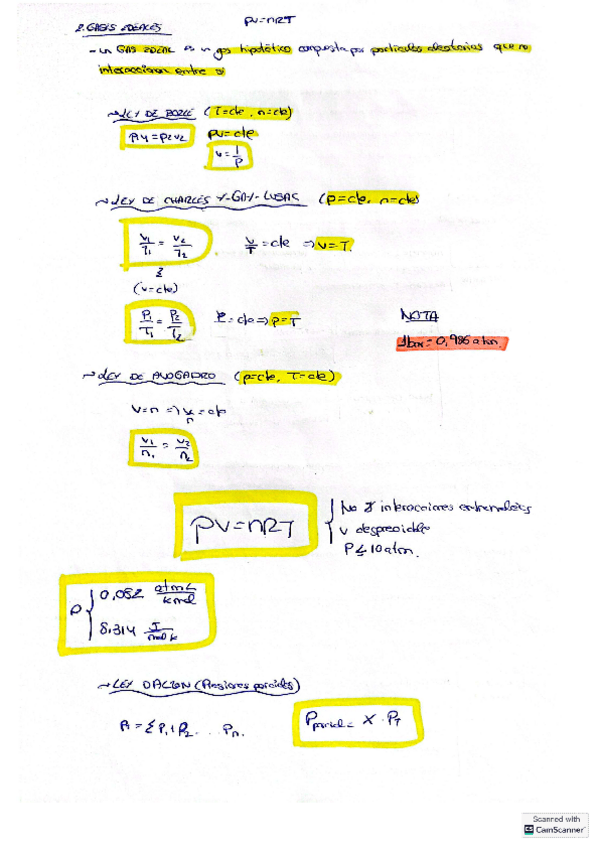 2. GASES IDEALES
PV=nRT
- Un GAS IDEAL es un gas hipotético compuesto por partículas aleatorias que no
interaccionan entre sí
→ LEY DE BOYLE (T=cte, n=cte)
P1V1=P2V2 PV=cte
V=1/P
→ LEY DE CHARLES Y GAY-LUSAC (p=cte, n=cte)
V1/T1 = V2/T2 V/T=cte ⇒ V=T.
(V=cte)
P1/T1 = P2/T2 P/T=cte ⇒ P=T
NOTA
1bar=0,986 atm.
→ LEY DE AVOGADRO (p=cte, T=cte)
V=n ⇒ V/n=cte
V1/n1 = V2/n2
PV=nRT
No ∃ interacciones
V despreciable
P≤10 atm.
R { 0.082 atm L/k mol
8.314 J/mol k
→ LEY DALTON (Presiones parciales)
PT = Σ P1+P2... Pn.
Pparcial = X · PT
Scanned with
CamScanner